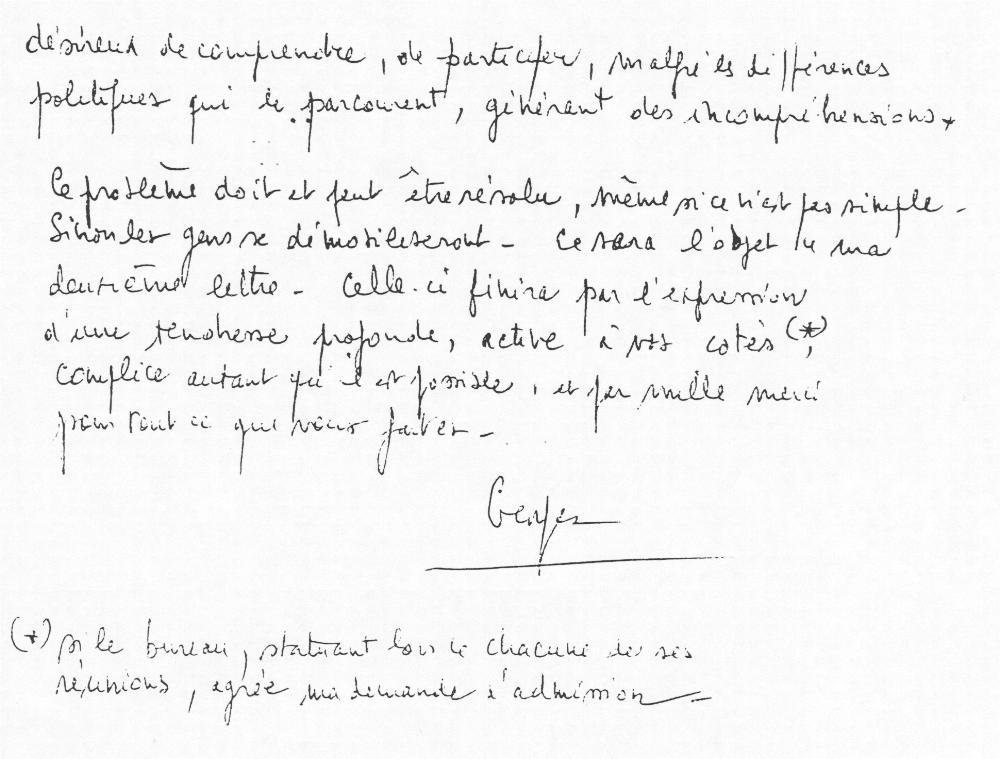 désireux de comprendre, de participer, malgré les différences
politiques qui le parcourent, générant des incompréhensions.
Ce problème doit et peut être résolu, même si ce n'est pas simple -
Sinon les gens se démobiliseront - Ce sera l'objet de ma
deuxième lettre - Celle-ci finira par l'expression
d'une tendresse profonde, active à vos cotés (*),
complice autant qu'il est possible, et par mille merci
pour tout ce que vous faites -
(*) si le bureau, statuant lors de chacune de ses
réunions, agrée ma demande d'admission -